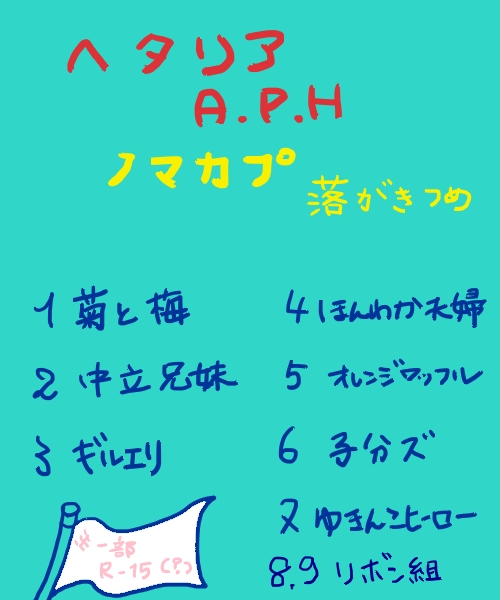 ヘタリア
A.P.H
ノマカプ
落がきつめ
1 菊と梅
2 中立兄妹
3 ギルエリ
4 ほんわか夫婦
5 オレンジワッフル
6 子分ズ
7 ゆきんこヒーロー
8.9 リボン組
※一部
R-15(?)